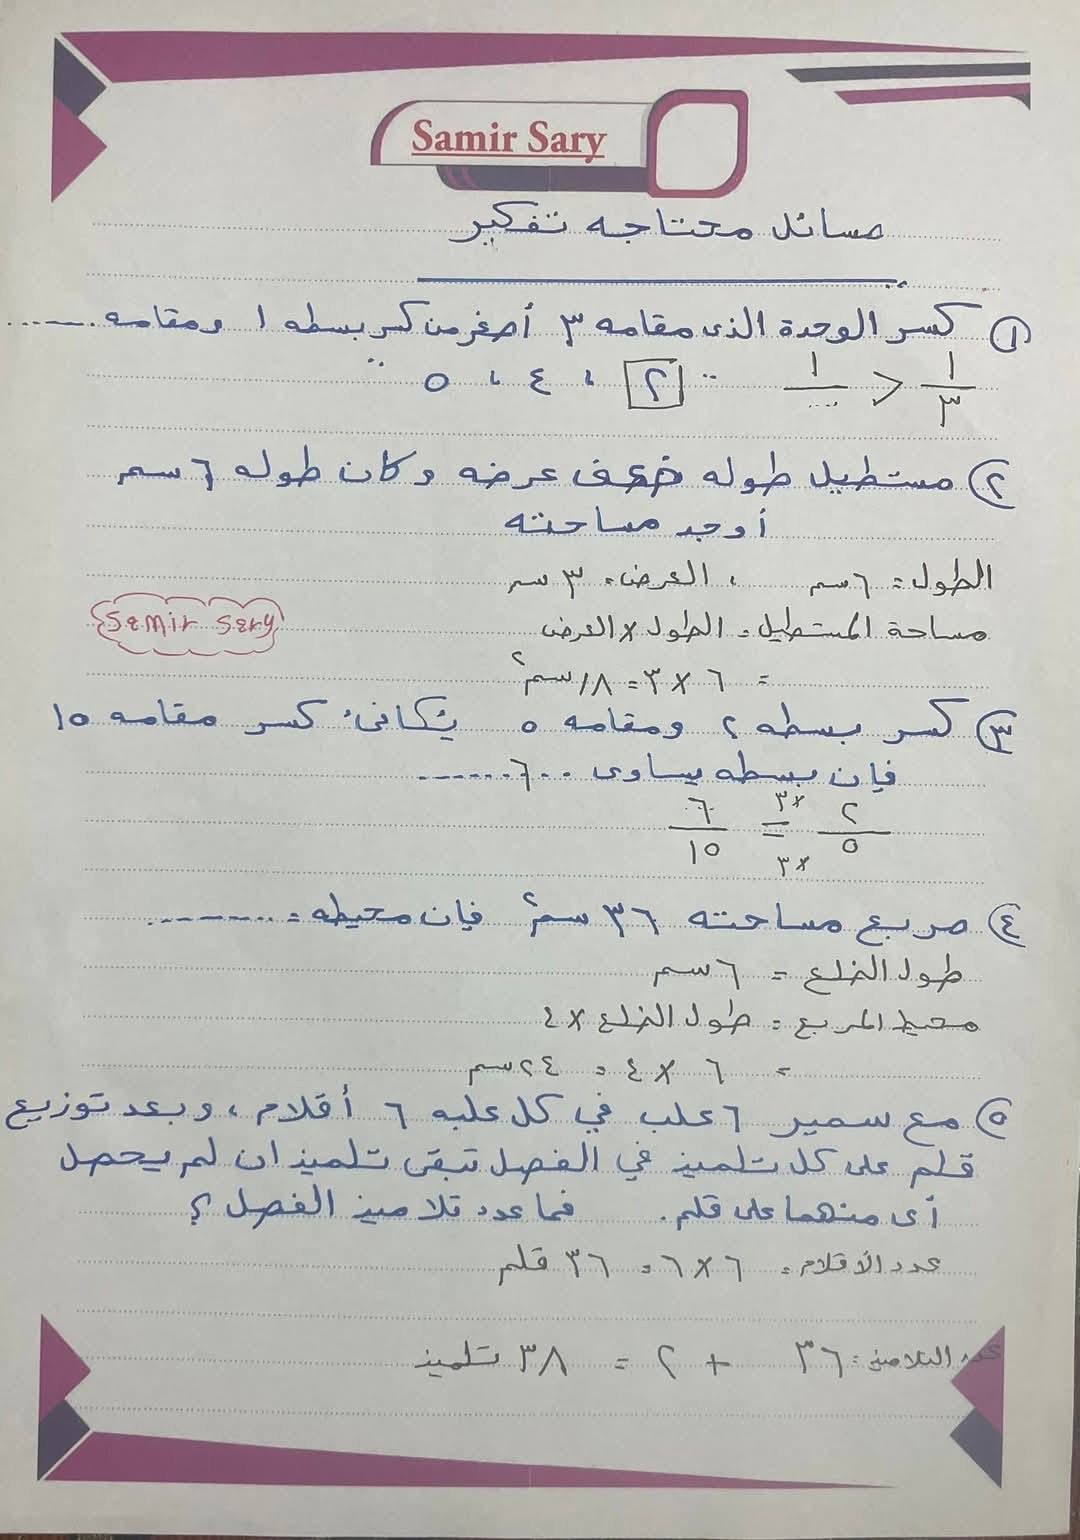 Samir Sary
مسائل محتاجه تفكير
① كسر الوحدة الذى مقامه ٣ أصغر من كسر بسطه ١ ومقامه ........
١/٣ < ١/... .. ٢ ، ٤ ، ٥ ..
② مستطيل طوله ضعف عرضه وكان طوله ٦ سم
أوجد مساحته
الطول = ٦ سم ، العرض = ٣ سم
Samir Sary
مساحة المستطيل = الطول × العرض
= ٦ × ٣ = ١٨ سم٢
③ كسر بسطه ٢ ومقامه ٥ يُكافئ كسر مقامه ١٥
فإن بسطه يساوى ...٦.......
٢/٥ =×٣ ×٣ ٦/١٥
④ مربع مساحته ٣٦ سم٢ فإن محيطه = ..........
طول الضلع = ٦ سم
محيط المربع = طول الضلع × ٤
= ٦ × ٤ = ٢٤ سم
⑤ مع سمير ٦ علب في كل علبه ٦ أقلام ، وبعد توزيع
قلم على كل تلميذ في الفصل تبقى تلميذان لم يحصل
أى منهما على قلم . فما عدد تلاميذ الفصل ؟
عدد الأقلام = ٦ × ٦ = ٣٦ قلم
عدد التلاميذ = ٣٦ + ٢ = ٣٨ تلميذ